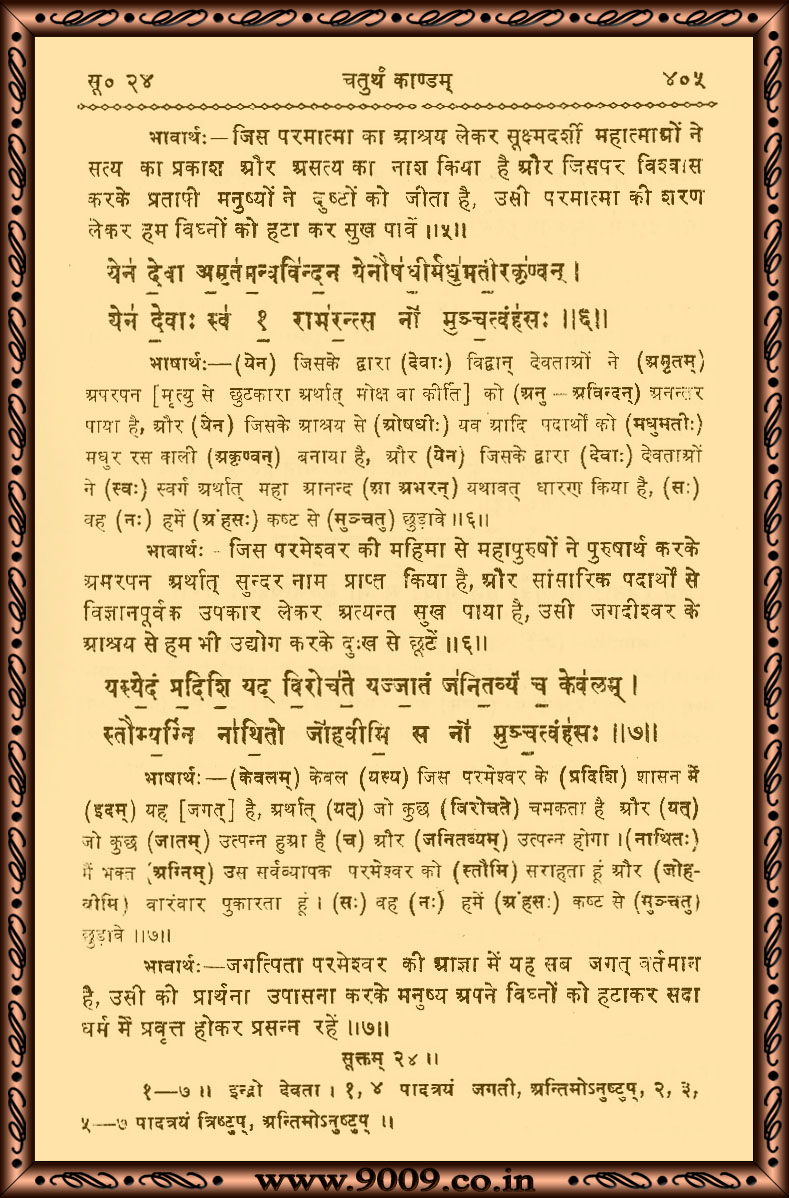 सू० २४ चतुर्थं काण्डम् ४०५
भावार्थः—जिस परमात्मा का आश्रय लेकर सूक्ष्मदर्शी महात्माओं ने
सत्य का प्रकाश और असत्य का नाश किया है और जिसपर विश्वास
करके प्रतापी मनुष्यों ने दुष्टों को जीता है, उसी परमात्मा की शरण
लेकर हम विघ्नों को हटा कर सुख पावें ॥५॥
येन॑ दे॒वा अ॒मृत॑म॒न्ववि॑न्द॒न् येनौष॑धी॒र्मधु॑मती॒रकृ॑ण्वन् ।
येन॑ दे॒वाः स्व॑ १ राभ॑र॒न्त्स नो॑ मु॒ञ्च॒त्वंह॑सः ॥६॥
भाषार्थः—(येन) जिसके द्वारा (देवाः) विद्वान् देवताओं ने (अमृतम्)
अपरपन [मृत्यु से छुटकारा अर्थात् मोक्ष वा कीर्ति] को (अनु – अविन्दन्) अनन्तर
पाया है, और (येन) जिसके आश्रय से (ओषधीः) यव आदि पदार्थों को (मधुमतीः)
मधुर रस वाली (अकृण्वन्) बनाया है, और (येन) जिसके द्वारा (देवाः) देवताओं
ने (स्वः) स्वर्ग अर्थात् महा आनन्द (आ अभरन्) यथावत् धारण किया है, (सः)
वह (नः) हमें (अंहसः) कष्ट से (मुञ्चतु) छुड़ावे ॥६॥
भावार्थः - जिस परमेश्वर की महिमा से महापुरुषों ने पुरुषार्थ करके
अमरपन अर्थात् सुन्दर नाम प्राप्त किया है, और सांसारिक पदार्थों से
विज्ञानपूर्वक उपकार लेकर अत्यन्त सुख पाया है, उसी जगदीश्वर के
आश्रय से हम भी उद्योग करके दुःख से छूटें ॥६॥
यस्ये॒दं प्र॒दिशि॒ यद् वि॒रोच॑ते॒ यज्जा॒तं ज॑नित॒व्यं॑ च॒ केव॑लम् ।
स्तौम्य॒ग्निं ना॑थि॒तो जो॑हवीमि॒ स नो॑ मु॒ञ्च॒त्वंह॑सः ॥७॥
भाषार्थः—(केवलम्) केवल (यस्य) जिस परमेश्वर के (प्रदिशि) शासन में
(इदम्) यह [जगत्] है, अर्थात् (यत्) जो कुछ (विरोचते) चमकता है और (यत्)
जो कुछ (जातम्) उत्पन्न हुआ है (च) और (जनितव्यम्) उत्पन्न होगा । (नाथितः)
मैं भक्त (अग्निम्) उस सर्वव्यापक परमेश्वर को (स्तौमि) सराहता हूं और (जोह-
वीमि) वारंवार पुकारता हूं । (सः) वह (नः) हमें (अंहसः) कष्ट से (मुञ्चतु)
छुड़ावे ॥७॥
भावार्थः—जगत्पिता परमेश्वर की आज्ञा में यह सब जगत् वर्तमान
है, उसी की प्रार्थना उपासना करके मनुष्य अपने विघ्नों को हटाकर सदा
धर्म में प्रवृत्त होकर प्रसन्न रहें ॥७॥
सूक्तम् २४ ॥
१—७ ॥ इन्द्रो देवता । १, ४ पादत्रयं जगती, अन्तिमोऽनुष्टुप्, २, ३,
५—७ पादत्रयं त्रिष्टुप्, अन्तिमोऽनुष्टुप् ॥
www.9009.co.in